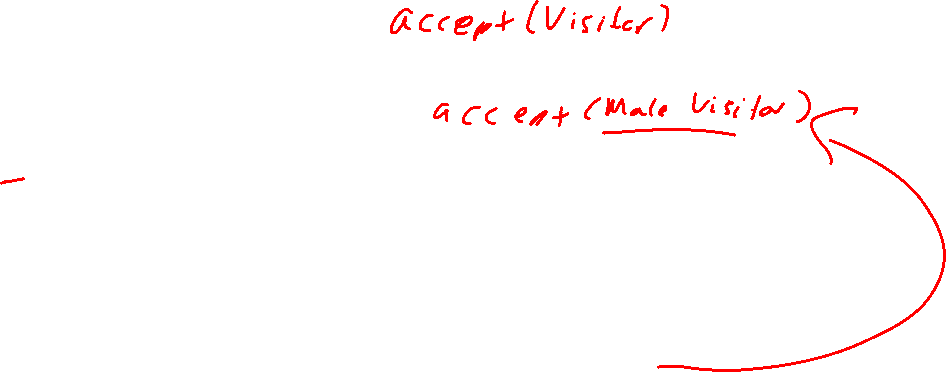 accept(Visitor)
accept(Male Visitor)